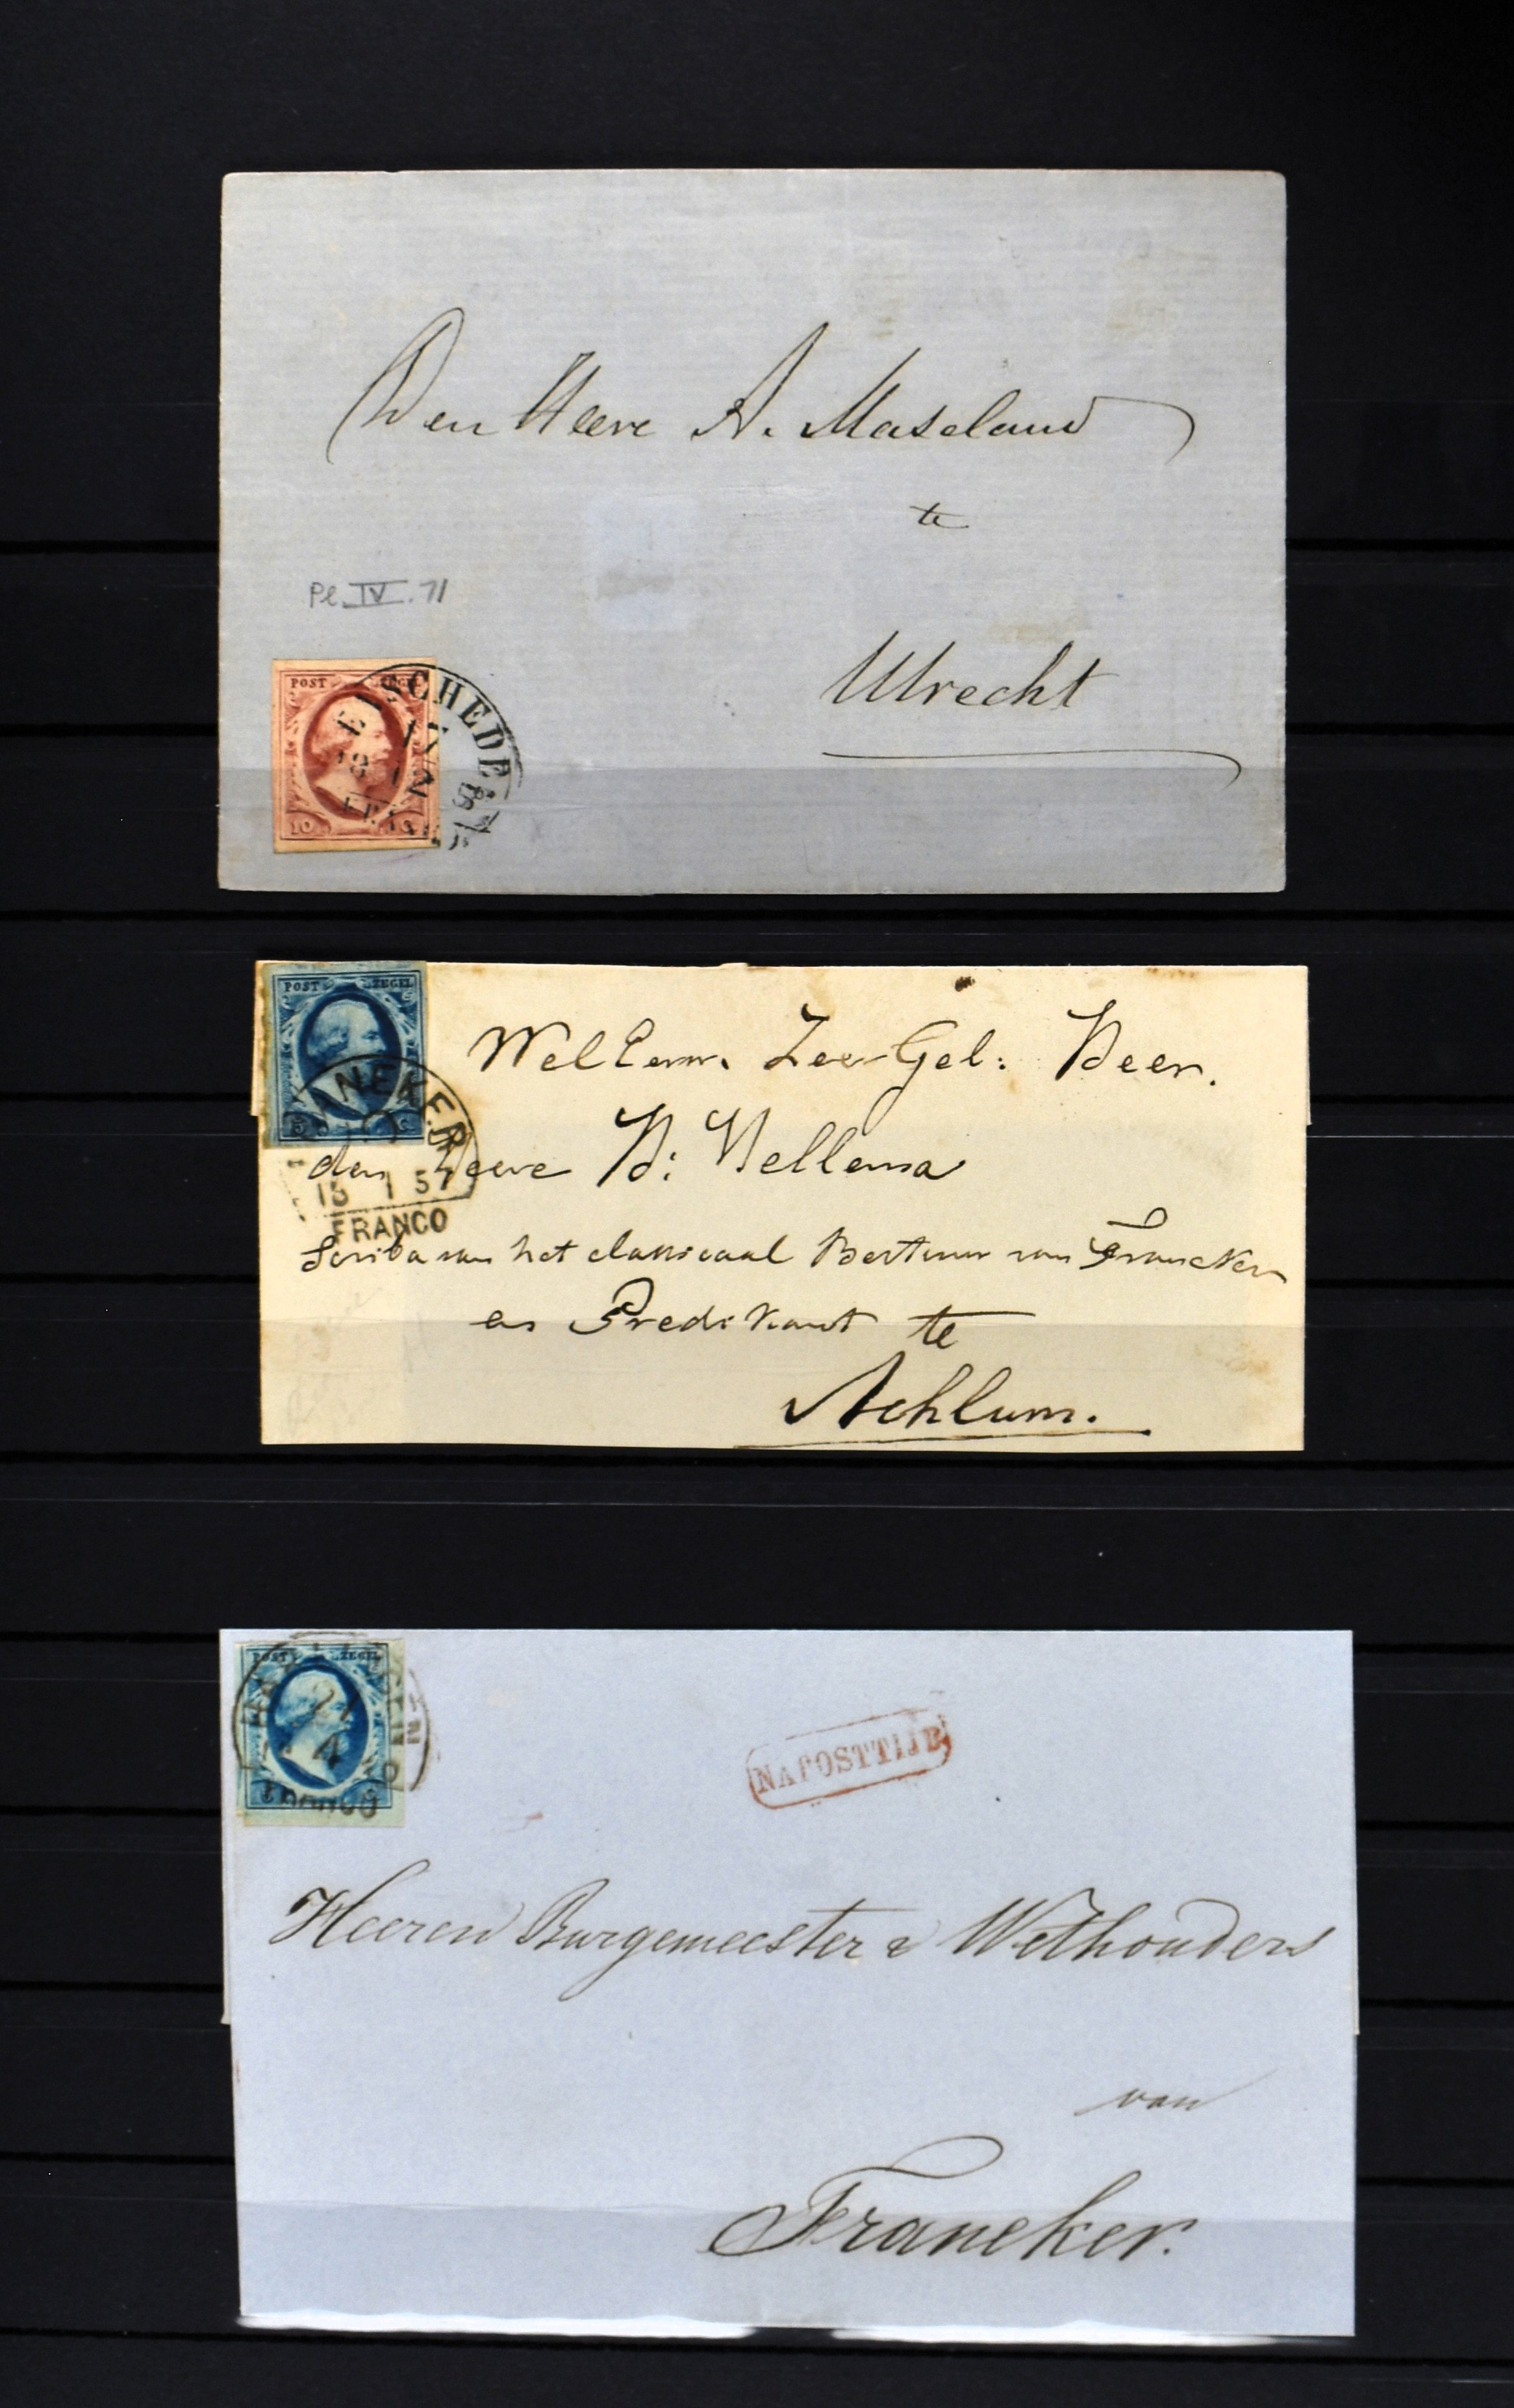 Den Heere A. Maseland
te
Pl. IV. 71
Utrecht
POST ZEGEL
10
POST ZEGEL
5 C
Zeer Gel: Heer.
den Heere H: Hellema
15 1 57
FRANCO
Scriba van het classicaal Bestuur van Franeker
en Predikant te
Achlum.
POST ZEGEL
NAPOSTTIJD
Heeren Burgemeester & Wethouders
van
Franeker.